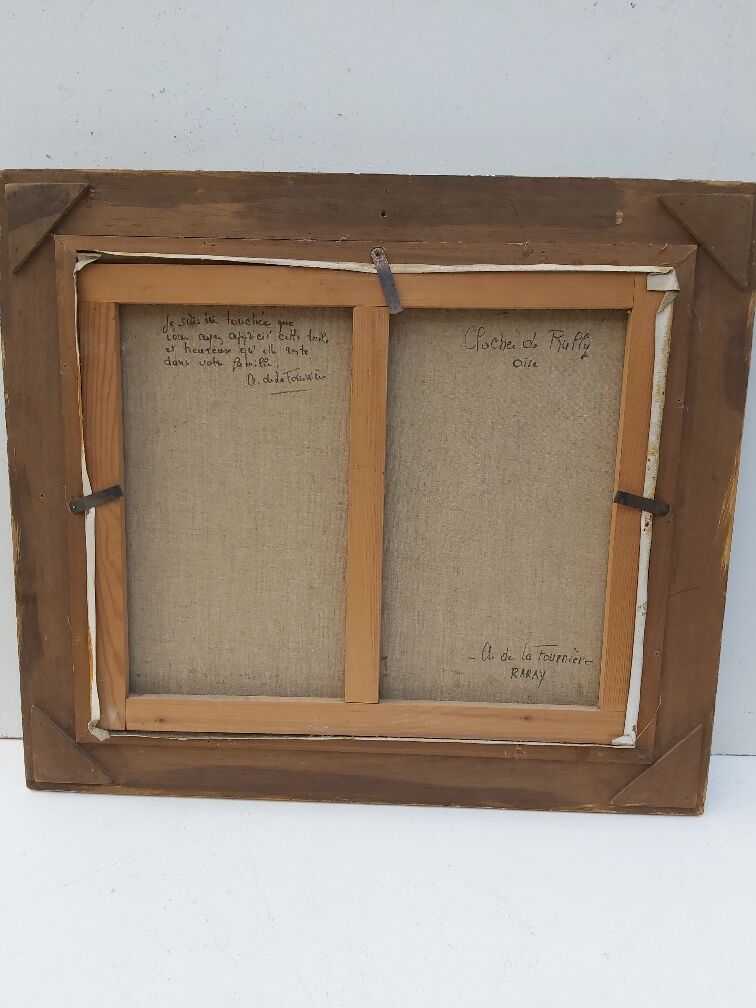 Je suis très touchée que
vous ayez apprécié cette toile
et heureuse qu'elle reste
dans votre famille.
A. de la Fournière
Clocher de Rully
Oise
- A. de la Fournière -
RARAY